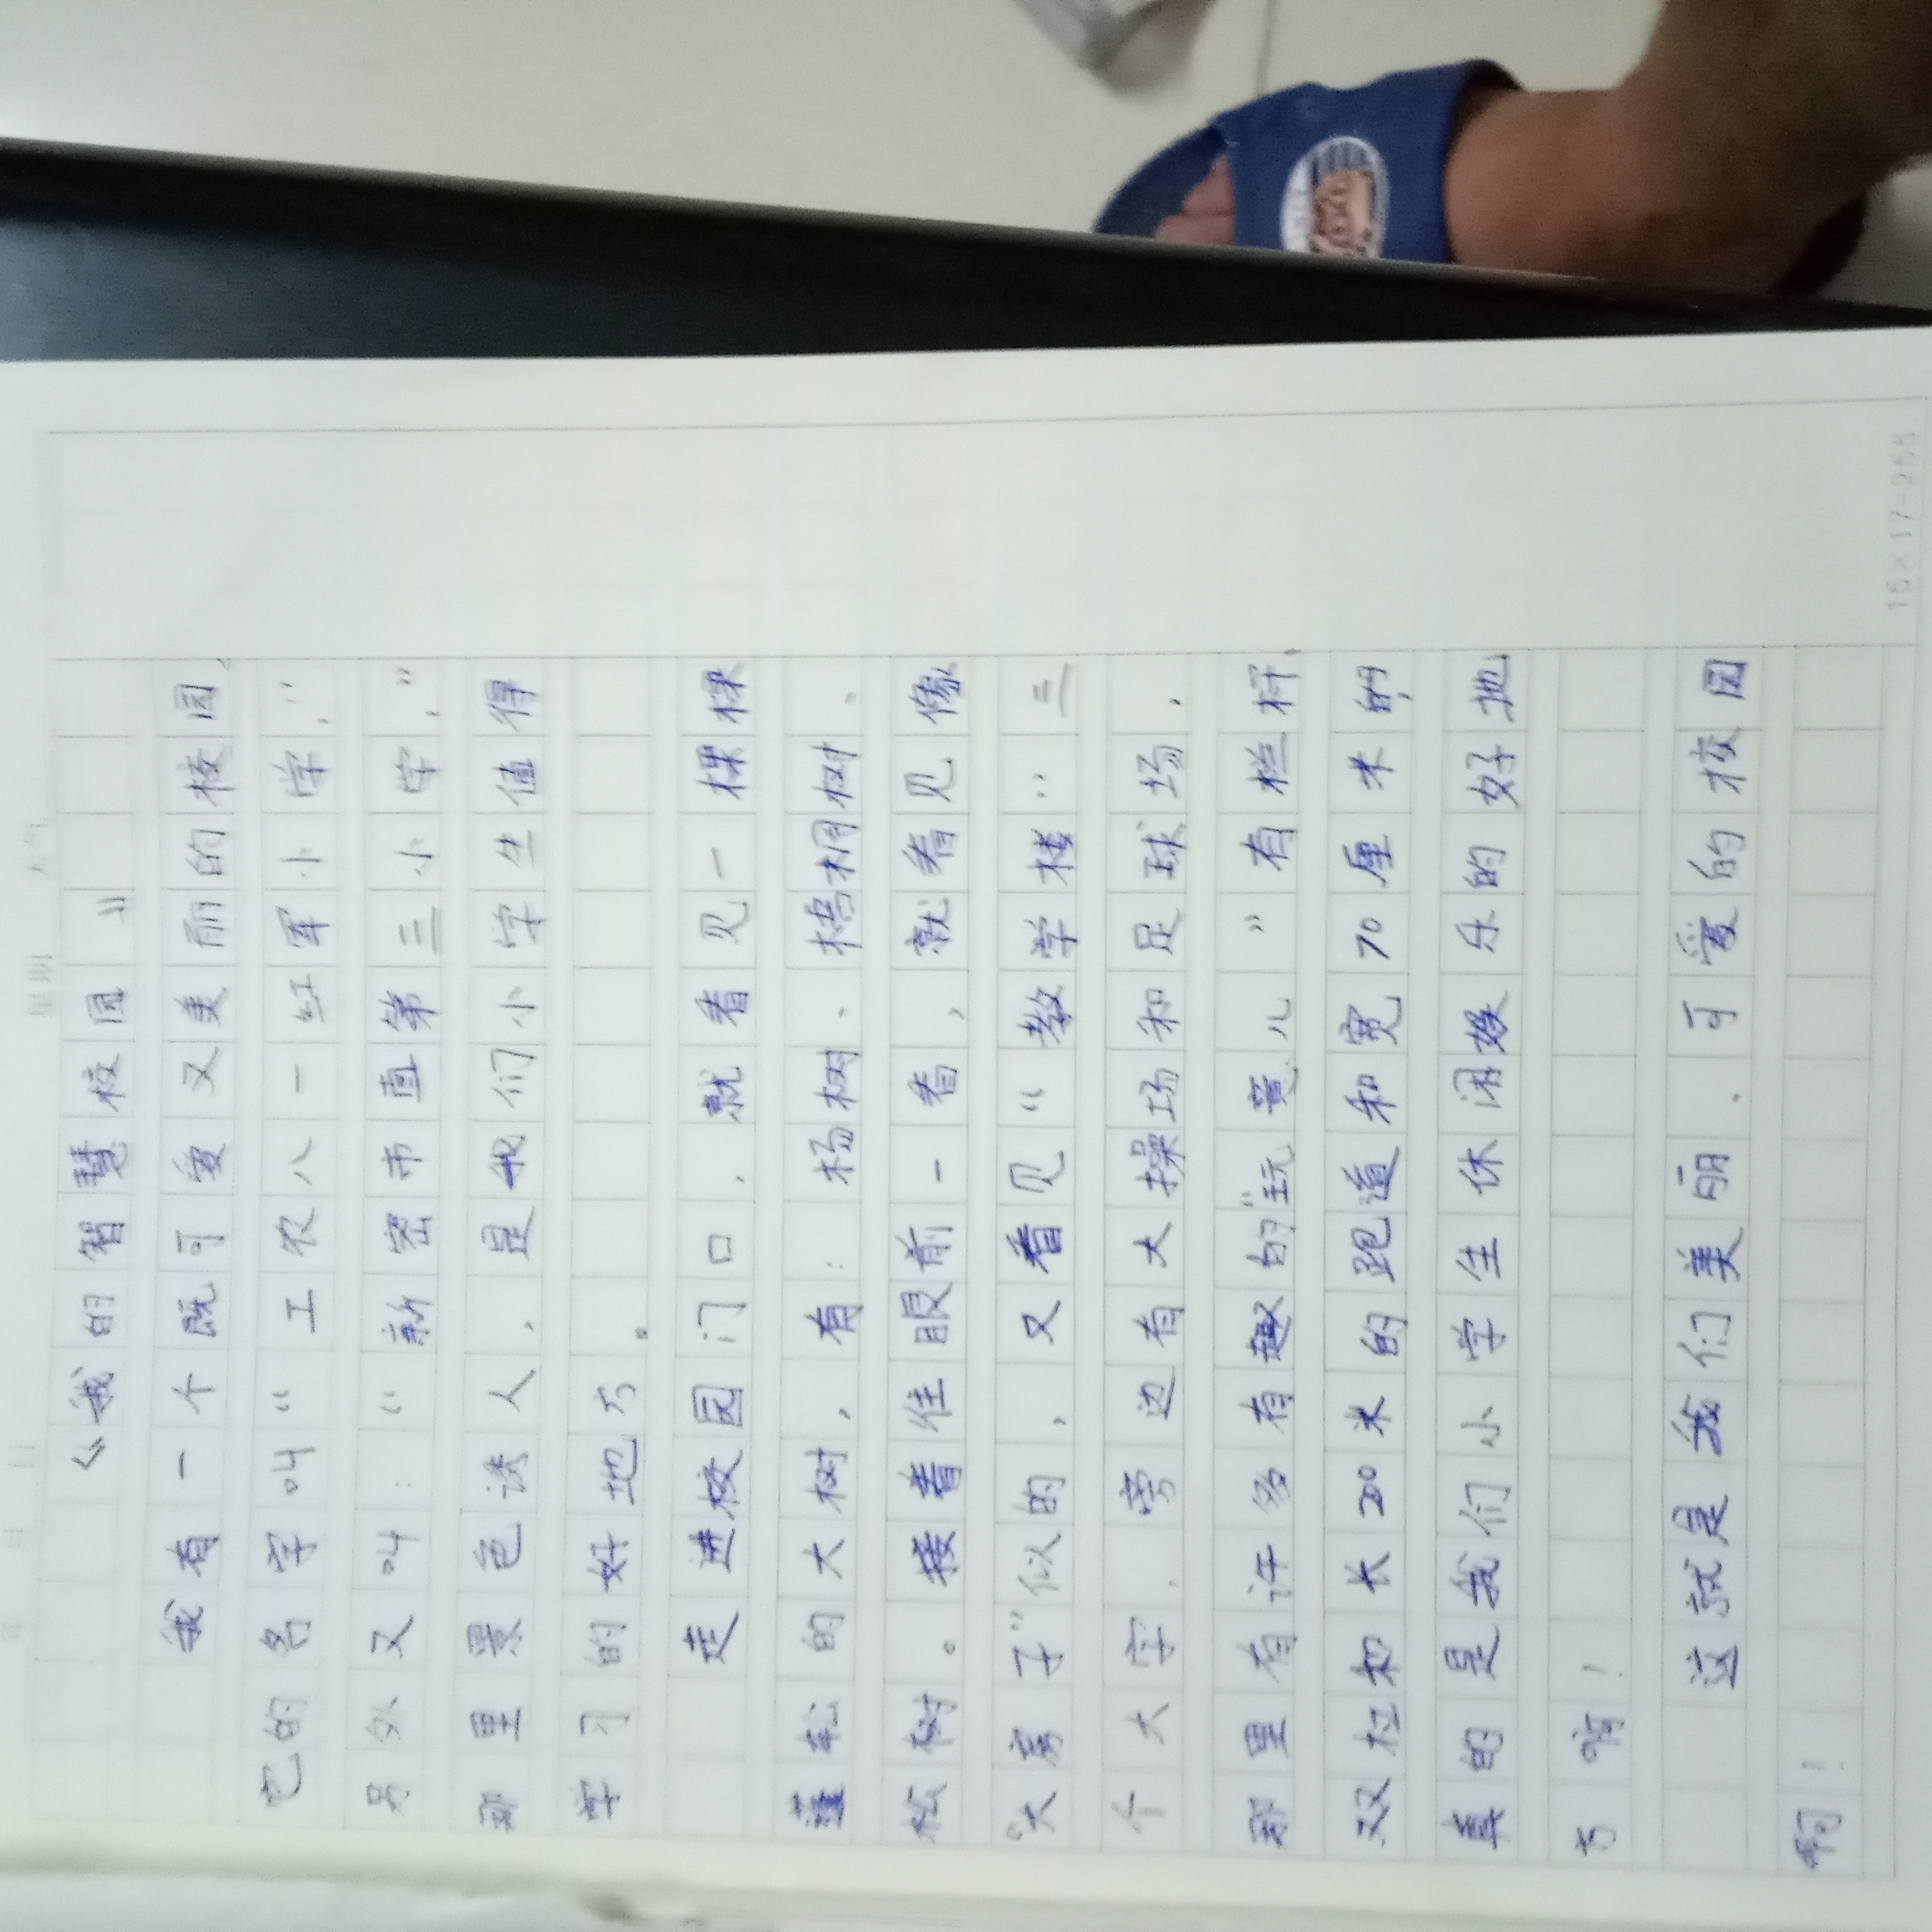 年 月 日 星期 天气
《我的智慧校园》
我有一个既可爱又美丽的校园,
它的名字叫“工农八一红军小学,”
另外又叫:“新密市直第三小学,”
那里景色诱人,是我们小学生值得
学习的好地方。
走进校园门口,就看见一棵棵
蓬松的大树,有:杨树、梧桐树、
松树。接着往眼前一看,就看见像
“大房子”似的,又看见“教学楼”三
个大字,旁边有大操场和足球场,
那里有许多有趣的“玩意儿”有栏杆
双杠和长200米的跑道和宽70厘米的,
真的是我们小学生休闲娱乐的好地
方啊!
这就是我们美丽.可爱的校园
啊!
15×17=255